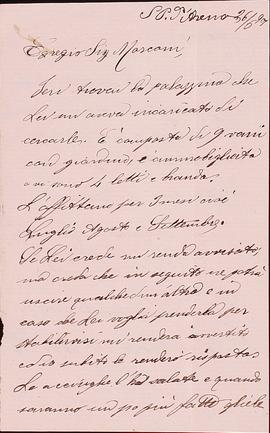 S. P. d'Arena 26/6
Egregio Sig Mosconi,
Ieri trovai la palazzina che
Lei mi aveva incaricato di
cercarle. È composta di 9 vani
con giardino, e ammobigliata
ove sono 4 letti e branda.
L'affittano per 3 mesi cioè
Luglio Agosto e Settembre.
Se Lei crede mi renda avvisato,
ma creda che in seguito ne potrà
uscire qualche d'un'altra e in
caso che Lei voglia prenderla per
stabilirvisi mi renderà avvertito
ed io subito le renderò risposta.
Le acciughe l'ho salate e quando
saranno un po più fatte gliele